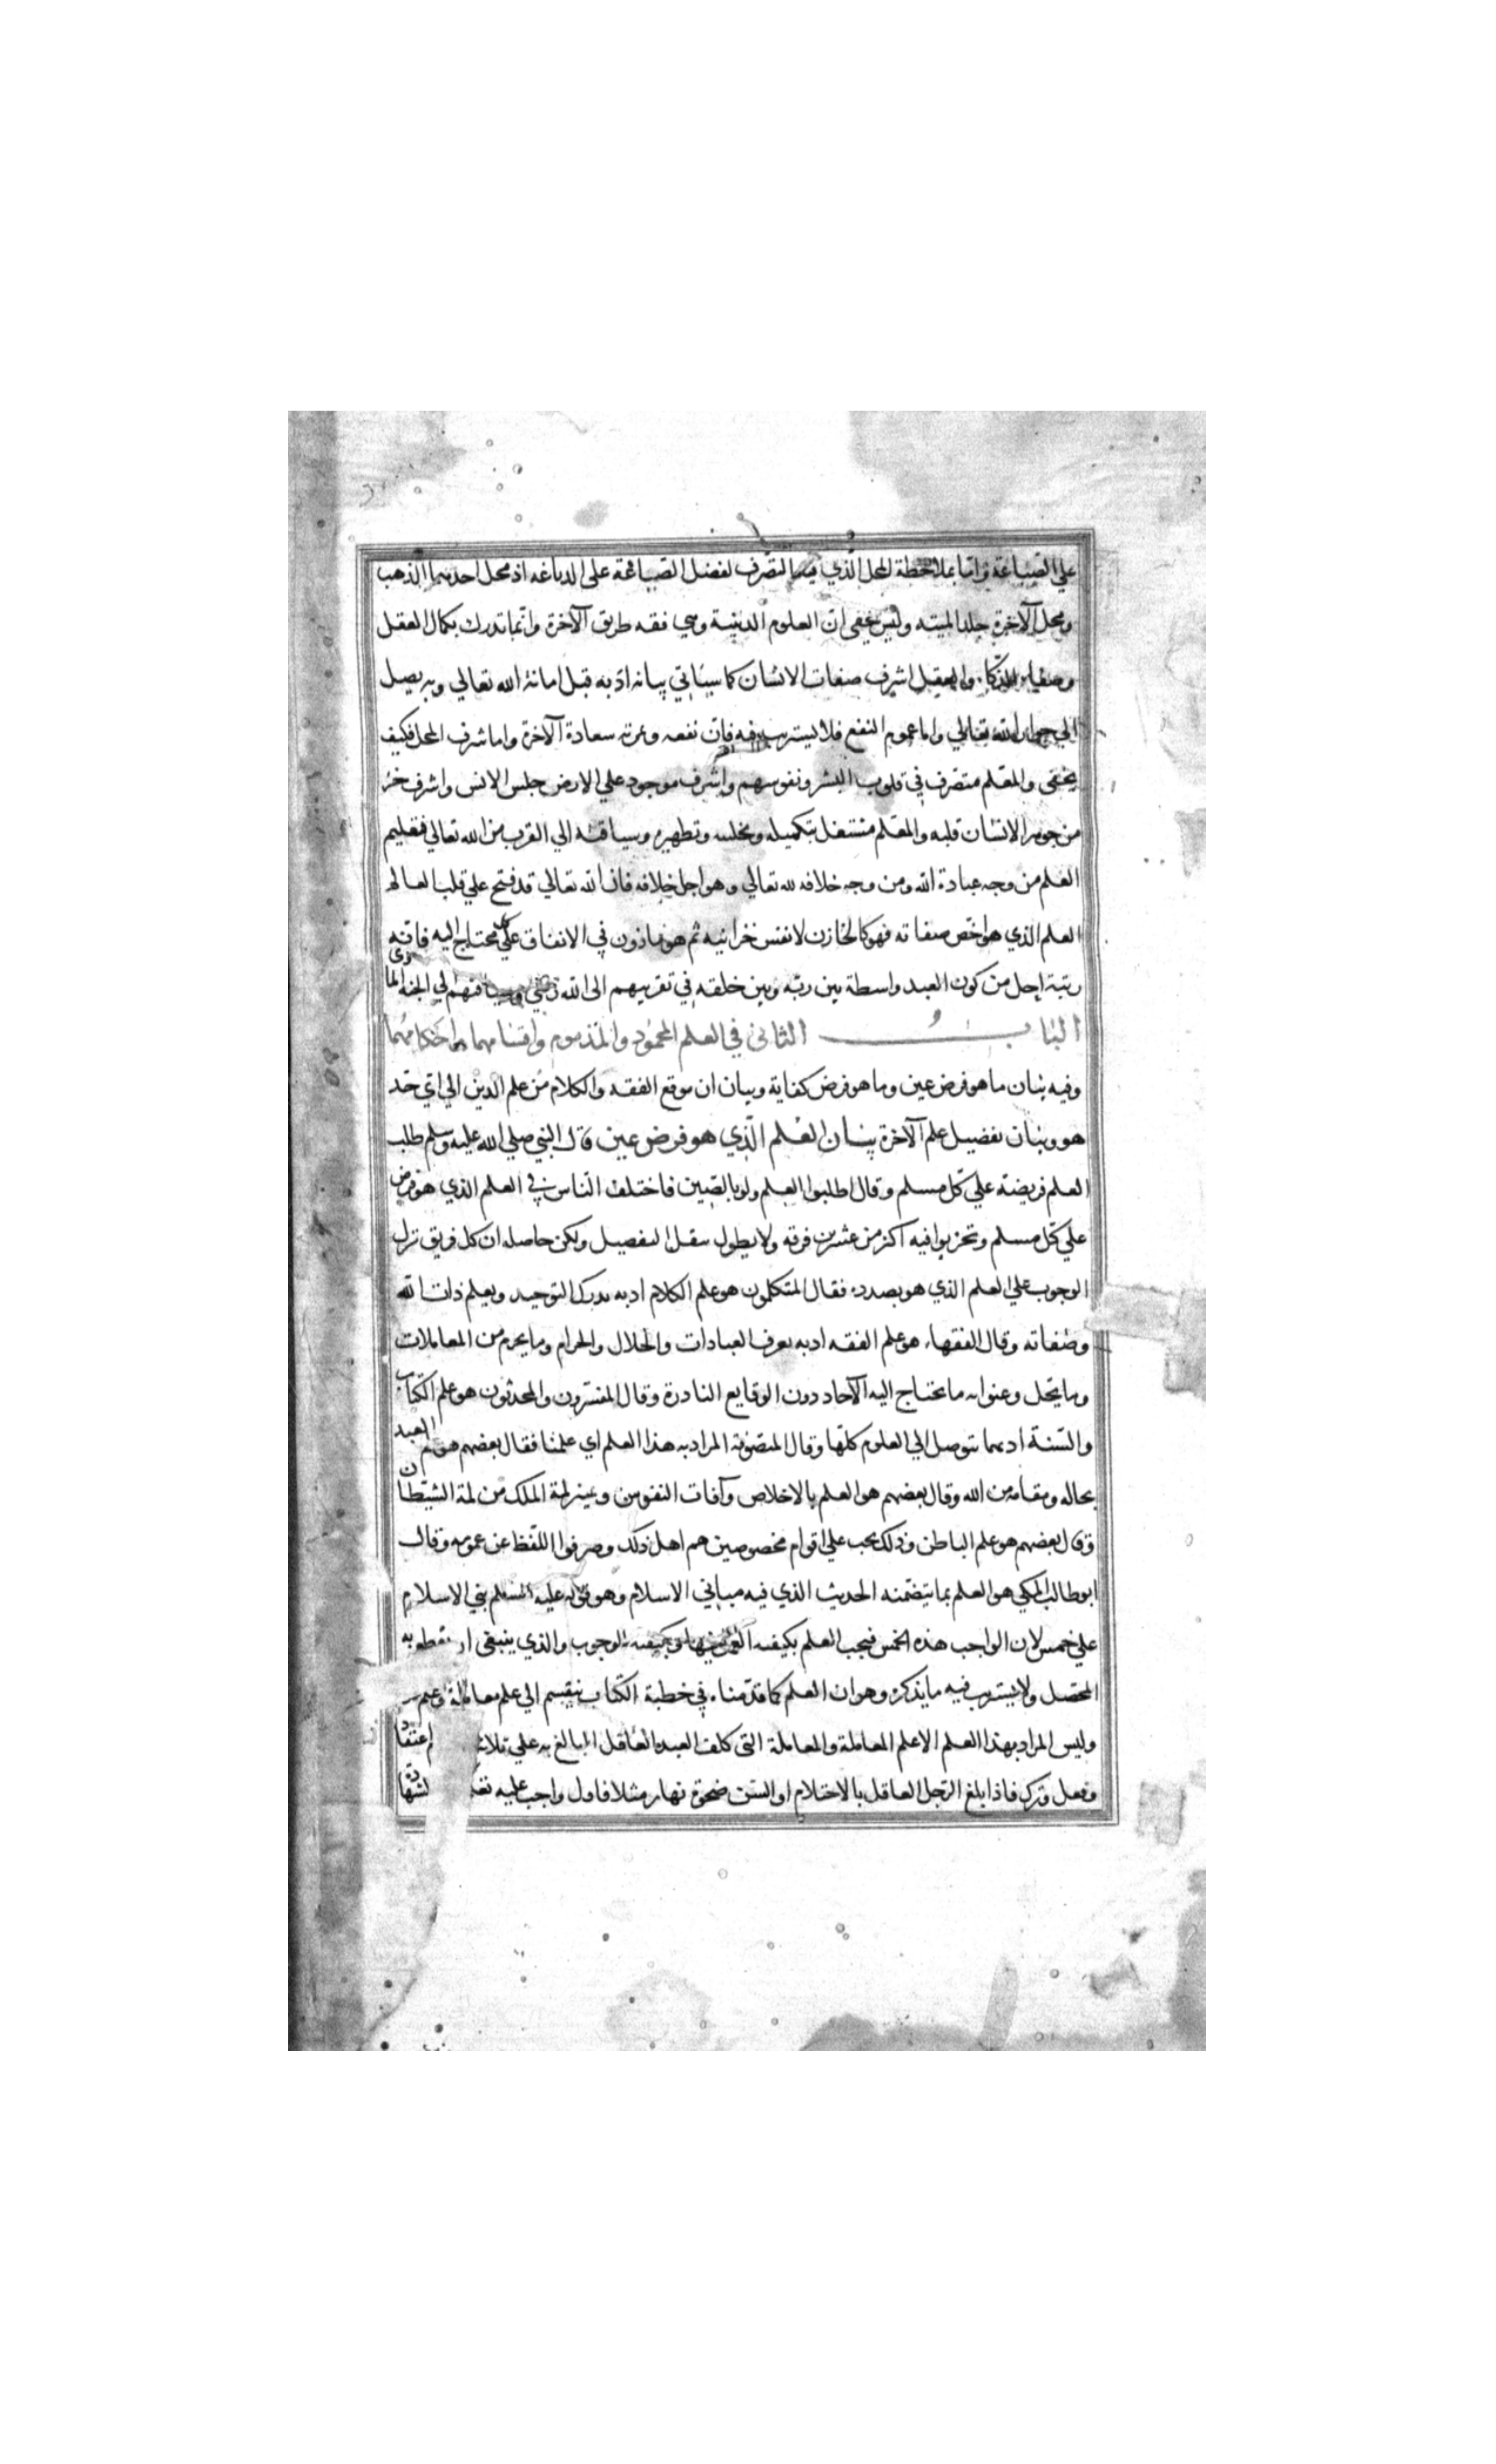 علي الصياغة واما بملاحظة المحل الذي فيه التصرف لفضل الصياغة على الدباغة اذ محل احدهما الذهب
ومحل الآخرة جلد الميتة وليس يخفى ان العلوم الدينية وهي فقه طريق الآخرة وانما تدرك بكمال العقل
وصفاء الذكاء والعقل اشرف صفات الانسان كما سيأتي بيانه اذ به قبل امانة الله تعالي وبه يصل
الي جوار الله تعالي واما عموم النفع فلا يستريب فيه فان نفعه وثمرته سعادة الآخرة واما شرف المحل فكيف
يخفى والمعلم متصرف في قلوب البشر ونفوسهم واشرف موجود علي الارض جنس الانس واشرف جزء
من جوهر الانسان قلبه والمعلم مشتغل بتكميله وتطهيره وسياقته الي القرب من الله تعالي فتعليم
العلم من وجه عبادة الله ومن وجه خلافه لله تعالي وهو اجل خلافه فان الله تعالي قد فتح علي قلب العالم
العلم الذي هو اخص صفاته فهو كالخازن لانفس خزانيه ثم هو ماذون في الانفاق علي كل محتاج اليه فاية
رتبة اجل من كون العبد واسطة بين ربه وبين خلقه في تقريبهم الى الله زلفي وسياقتهم الي الجنة الماوى
الباب الثاني في العلم المحمود والمذموم واقسامهما واحكامهما
وفيه بيان ما هو فرض عين وما هو فرض كفاية وبيان ان موقع الفقه والكلام من علم الدين الي اي حد
هو وبيان تفضيل علم الآخرة بيان العلم الذي هو فرض عين قال النبي صلي الله عليه وسلم طلب
العلم فريضة علي كل مسلم وقال اطلبوا العلم ولو بالصين فاختلف الناس في العلم الذي هو فرض
علي كل مسلم وتحزبوا فيه اكثر من عشرين فرقة ولا يطول بنقل التفصيل ولكن حاصله ان كل فريق نزل
الوجوب علي العلم الذي هو بصدده فقال المتكلمون هو علم الكلام اذ به يدرك التوحيد ويعلم ذات الله
وصفاته وقال الفقهاء هو علم الفقه اذ به يعرف العبادات والحلال والحرام وما يحرم من المعاملات
وما يحل وعنوا به ما يحتاج اليه الآحاد دون الوقايع النادرة وقال المفسرون والمحدثون هو علم الكتاب
والسنة اذ بهما يتوصل الي العلوم كلها وقال المتصوفة المراد به هذا العلم اي علمنا فقال بعضهم هو علم العبد
بحاله ومقامه من الله وقال بعضهم هو العلم بالاخلاص وآفات النفوس وتميز لمة الملك من لمة الشيطان
وقال بعضهم هو علم الباطن وذلك يجب علي اقوام مخصوصين هم اهل ذلك وصرفوا اللفظ عن عمومه وقال
ابو طالب المكي هو العلم بما يتضمنه الحديث الذي فيه مباني الاسلام وهو قوله عليه السلم بني الاسلام
علي خمس لان الواجب هذه الخمس فيجب العلم بكيفية العمل فيها وبكيفية الوجوب والذي ينبغي ان يقطع به
المحصل ولا يستريب فيه ما يذكره وهو ان العلم كما قدمناه في خطبة الكتاب ينقسم الي علم معاملة وعلم
وليس المراد بهذا العلم الا علم المعاملة والمعاملة التي كلف العبد العاقل البالغ به علي ثلاثة اعتقاد
وفعل وترك فاذا بلغ الرجل العاقل بالاحتلام او السن ضحوة نهار مثلا فاول واجب عليه الشهادة